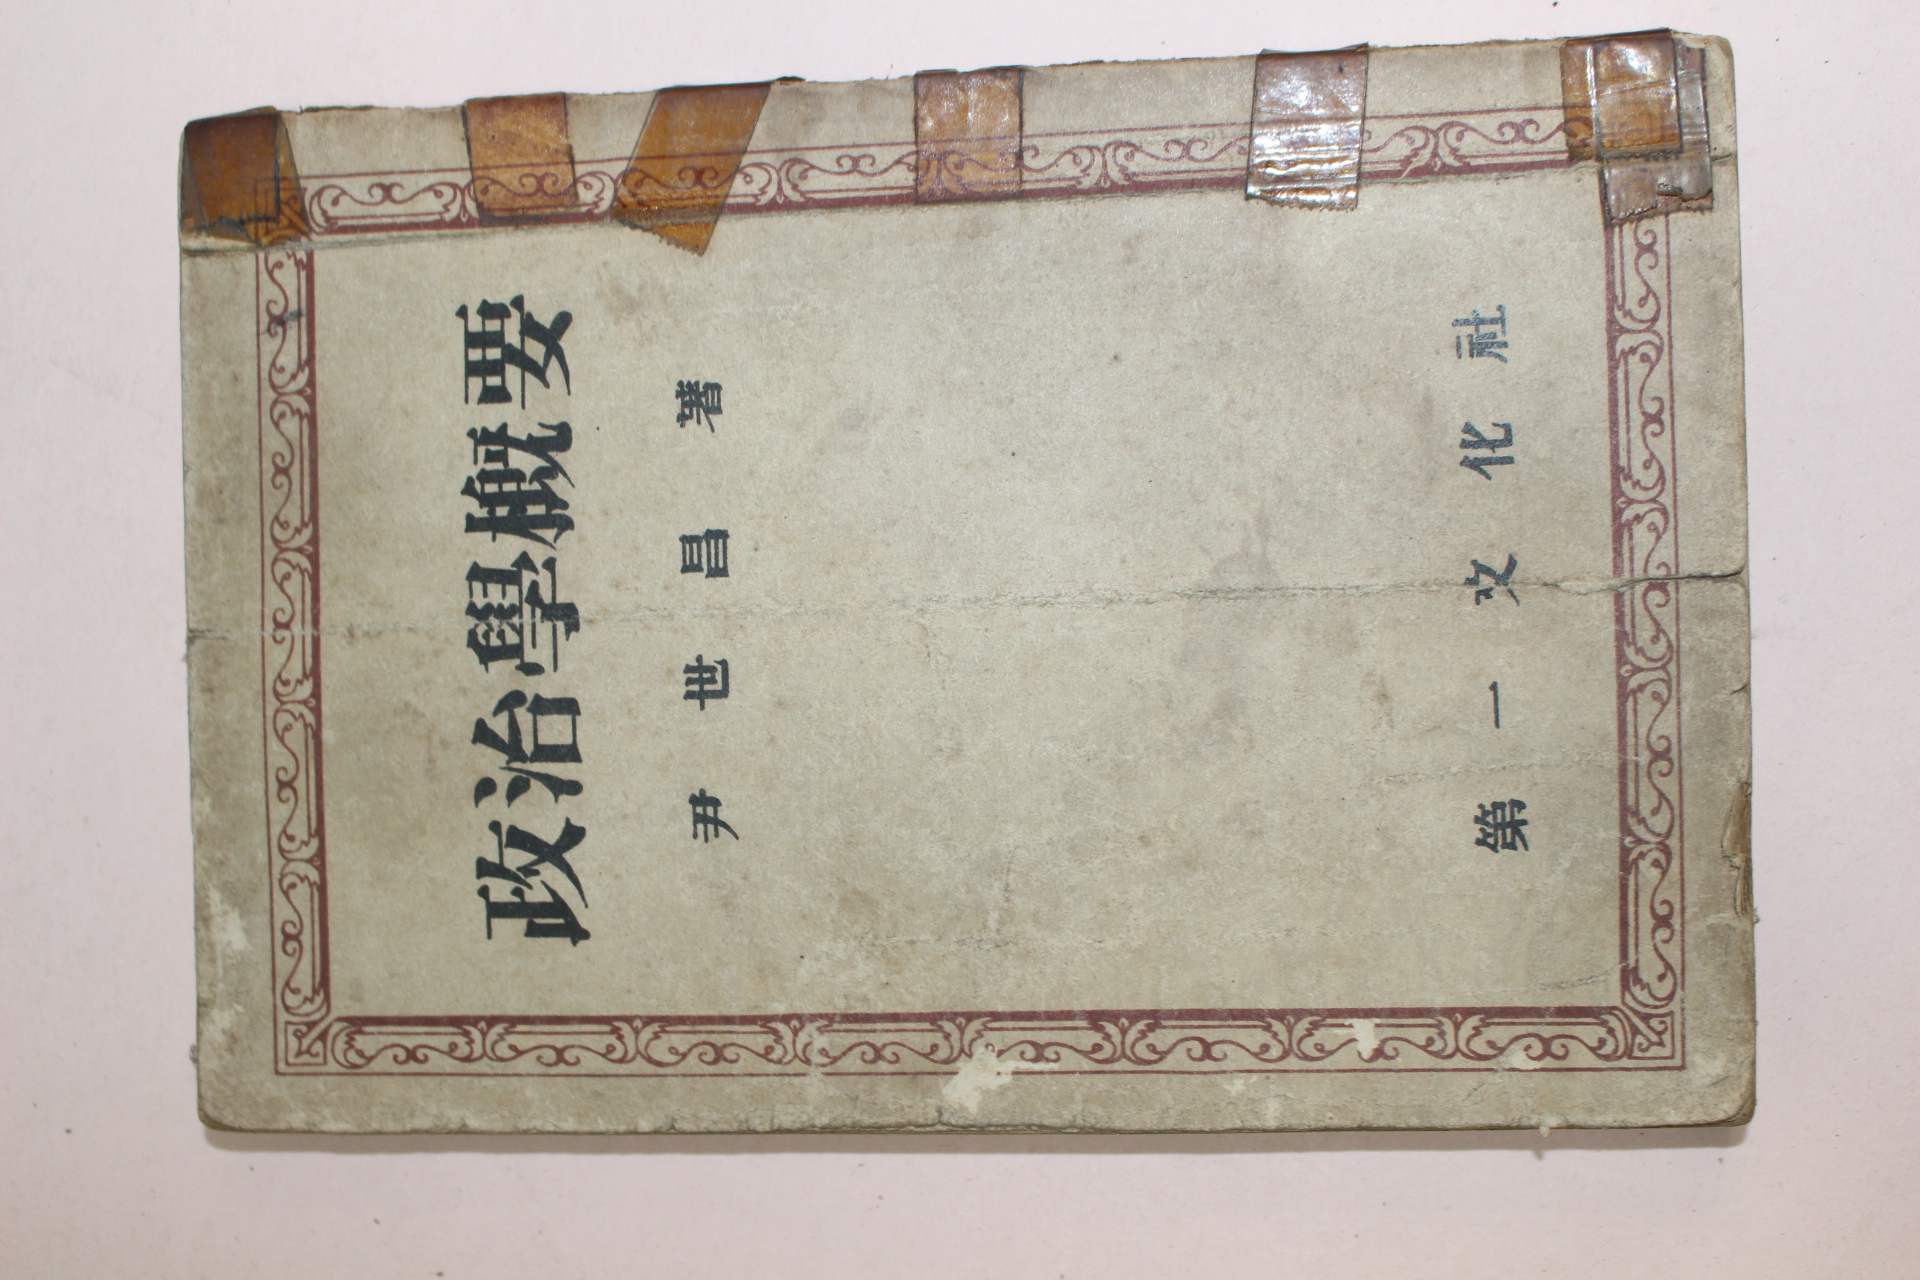 政治學概要
尹世昌著
第一文化社